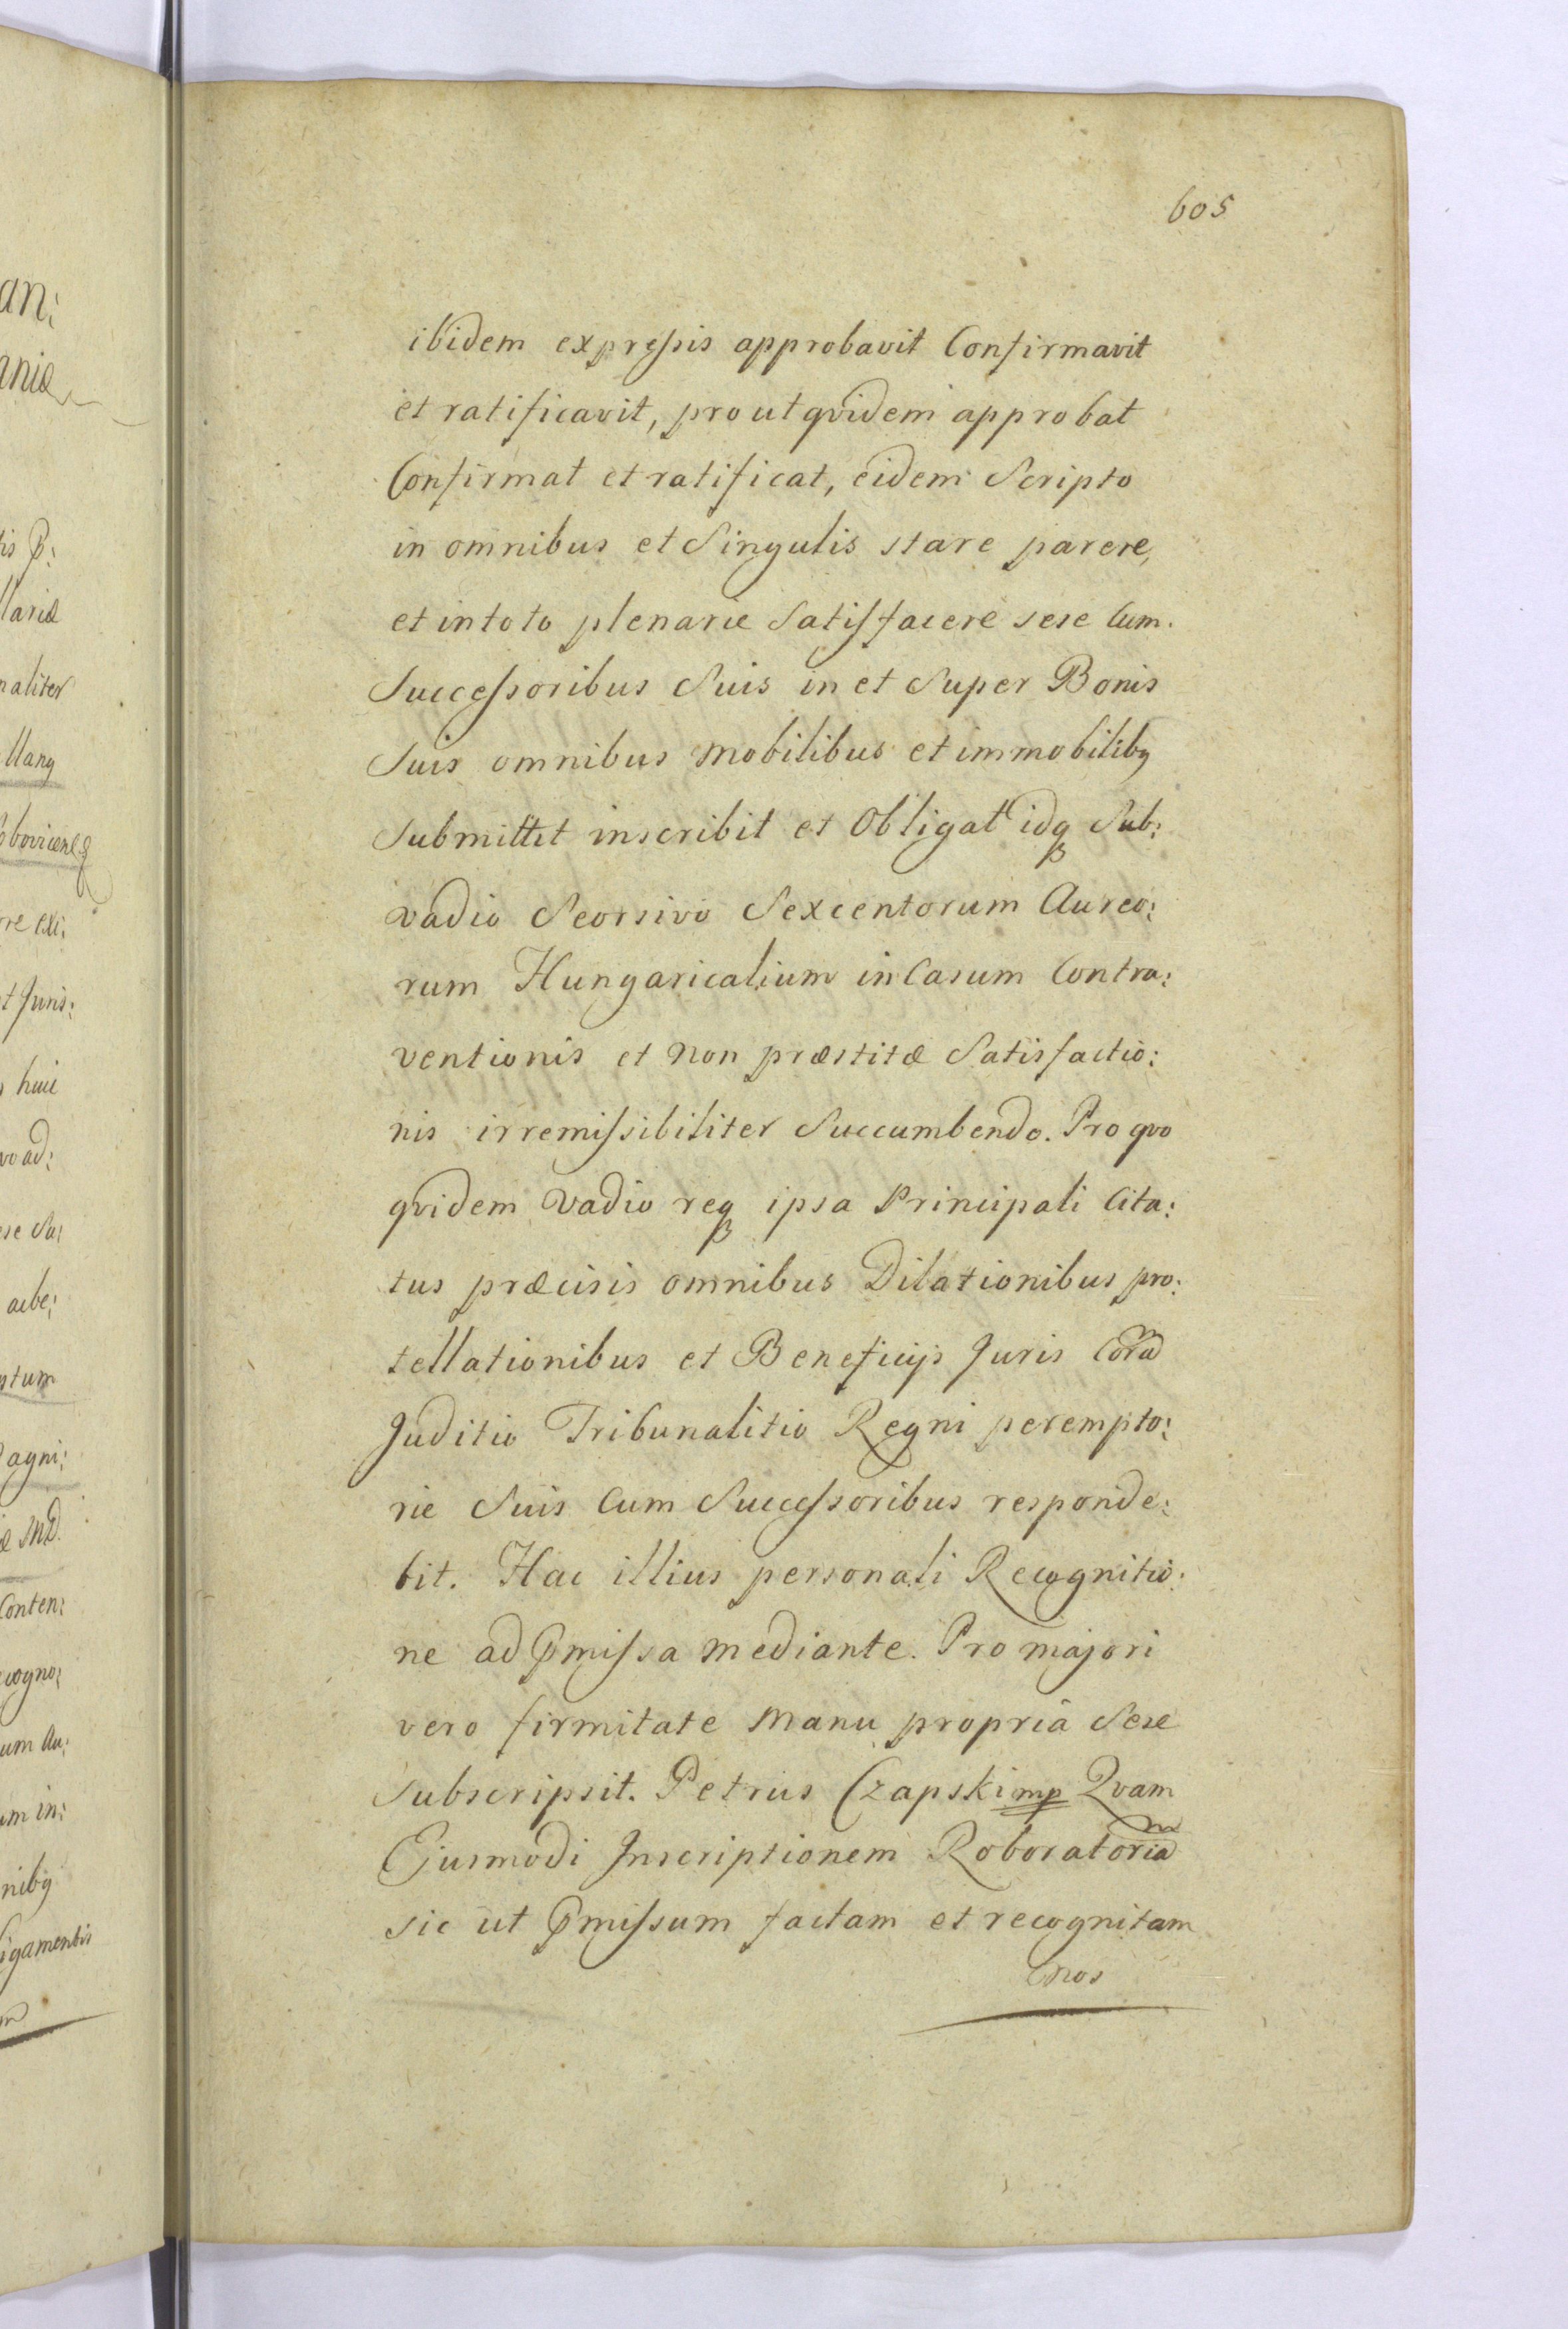 605
ibidem expressis approbavit Confirmavit
et ratificavit, prout qvidem approbat
Confirmat et ratificat, eidem Scripto
in omnibus et Singulis stare parere,
et in toto plenarie Satisfacere sese Cum.
Successoribus Suis in et Super Bonis
Suis omnibus mobilibus et immobiliby
Submittit inscribit et Obligat idq Sub:
vadio Seorsivo Sexcentorum Aureo:
rum Hungaricalium in Casum Contra:
ventionis et non præstitæ Satisfactio:
nis irremissibiliter Succumbendo. Pro qvo
qvidem vadio req ipsa Principali Cita:
tus præcisis omnibus Dilationibus pro:
tellationibus et Beneficijs Juris Cora
Juditio Tribunalitio Regni perempto:
rie Suis Cum Successoribus responde:
bit. Hac illius personali Recognitio:
ne ad Pmissa mediante. Pro majori
vero firmitate manu propria Sese
Subscripsit. Petrus Czapski mp Qvam
Ejusmodi Inscriptionem Roboratoria
sic ut Pmissum factam et recognitam
nos
an:
niæ
tis P:
llariæ
naliter
llany
rre exi:
t Juris:
huic
vo ad:
ese Sa:
acbe:
ntum
agni:
æ MD.
Conten:
cogno:
um Au:
um in:
niby
igamentis